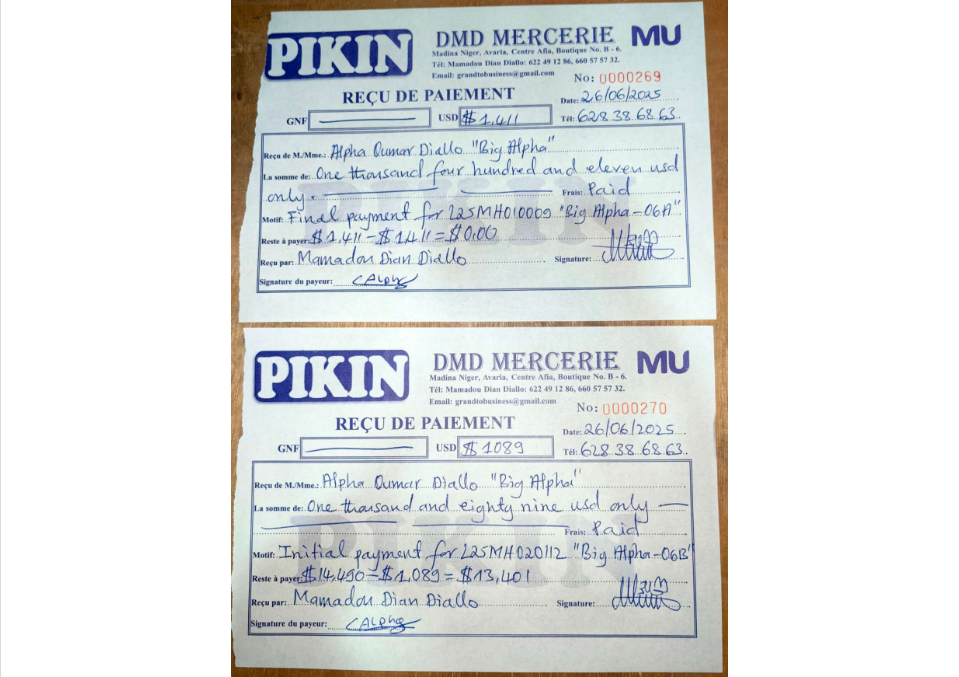 PIKIN
DMD MERCERIE MU
Madina Niger, Avaria, Centre Afia, Boutique No. B - 6.
Tél: Mamadou Dian Diallo: 622 49 12 86, 660 57 57 32.
Email: grandtobusiness@gmail.com
No: 0000269
REÇU DE PAIEMENT
Date: 26/06/2025
GNF USD $1,411 Tél: 628 38 68 63
Reçu de M./Mme.: Alpha Oumar Diallo "Big Alpha"
La somme de: One thousand four hundred and eleven usd
only. Frais: Paid
Motif: Final payment for L25MH010009 "Big Alpha-06A"
Reste à payer: $1,411 - $1,411 = $0.00
Reçu par: Mamadou Dian Diallo Signature:
Signature du payeur: CAlpha
PIKIN
PIKIN
DMD MERCERIE MU
Madina Niger, Avaria, Centre Afia, Boutique No. B - 6.
Tél: Mamadou Dian Diallo: 622 49 12 86, 660 57 57 32.
Email: grandtobusiness@gmail.com
No: 0000270
REÇU DE PAIEMENT
Date: 26/06/2025
GNF USD $1089 Tél: 628 38 68 63.
Reçu de M./Mme.: Alpha Oumar Diallo "Big Alpha"
La somme de: One thousand and eighty nine usd only
Frais: Paid
Motif: Initial payment for L25MH020112 "Big Alpha-06B"
Reste à payer: $14,490 - $1,089 = $13,401
Reçu par: Mamadou Dian Diallo Signature:
Signature du payeur: CAlpha
PIKIN